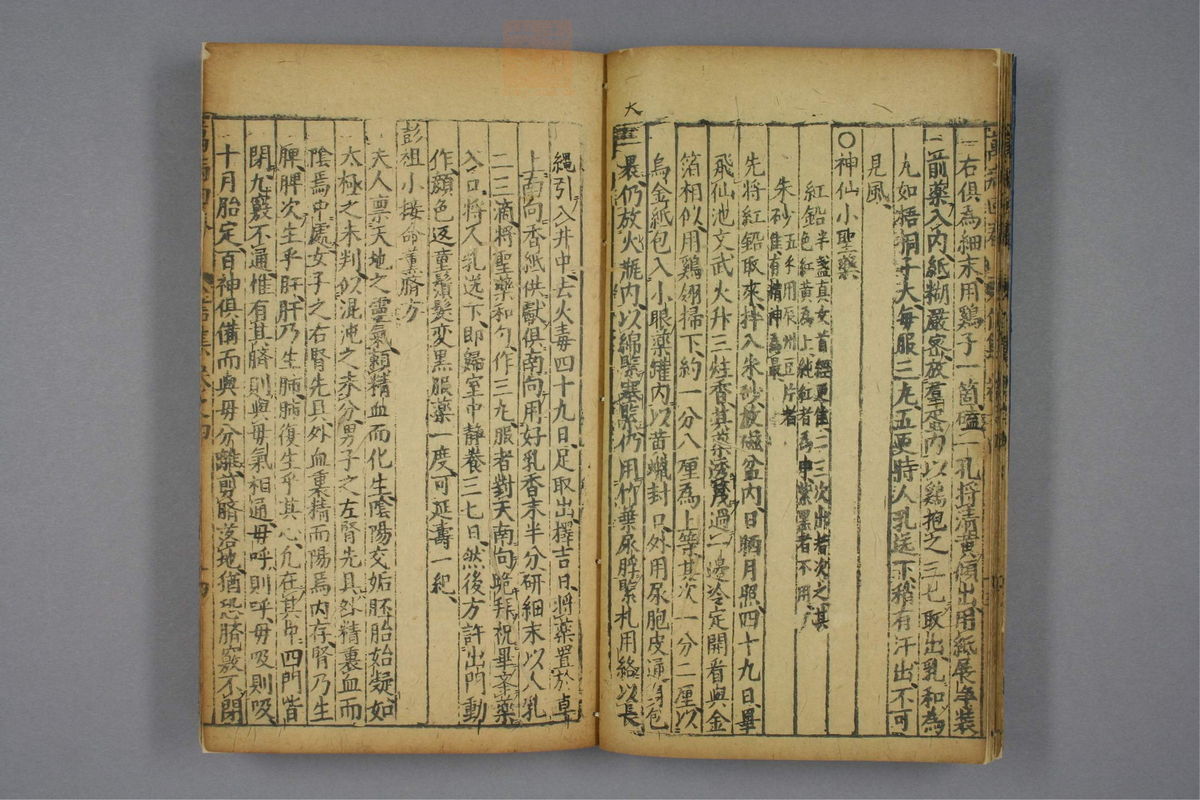 右俱為細末用鷄子一箇磕一孔將清黄傾出用紙展净裝
前藥入内紙糊嚴密放羣蛋内以鷄抱之三七取出乳和為
九如梧桐子大每服三九五更時人乳送下稍有汗出不可
見風
〇神仙小聖藥
紅鉛半盞真女首經更佳二三次出者次之其色紅黄為上純紅者為中紫黑者不用
朱砂五分用辰州豆片者佳有精神為最
先將紅鉛取來拌入朱砂放磁盆内日晒月照四十九日畢
飛仙池文武火升三炷香其藥
過一邊冷定開看與金
箔相似用鷄翎掃下約一分八厘為上等其次一分二厘以
烏金紙包入小眼藥罐内以黄蠟封口外用尿胞皮通身包
裹仍放火瓶内以綿緊塞緊仍用竹葉尿脬緊札用絡以長
大
繩引入井中去火毒四十九日足取出擇吉日將藥置於卓
上南向香紙供獻俱南向用好乳香末半分研細末以人乳
二三滴將聖藥和匀作三九服者對天南向跪拜祝畢
藥
入口將人乳送下即歸室中静養三七日然後方許出門動
作顔色返童鬚髮变黑服藥一度可延壽一紀
彭祖小接命熏臍方
夫人禀天地之靈氣頼精血而化生陰陽交姤胚胎始凝如
太極之未判似混沌之未分男子之左腎先具然精裏血而
陰焉中處女子之右腎先具外血裹精而陽焉内存腎乃生
脾脾次生乎肝肝乃生肺肺復生乎其心九在其中四門皆
閉九竅不通惟有其臍則與母氣相通母呼則呼母吸則吸
十月胎定百神俱備而與母分離剪臍落地猶恐臍竅不閉